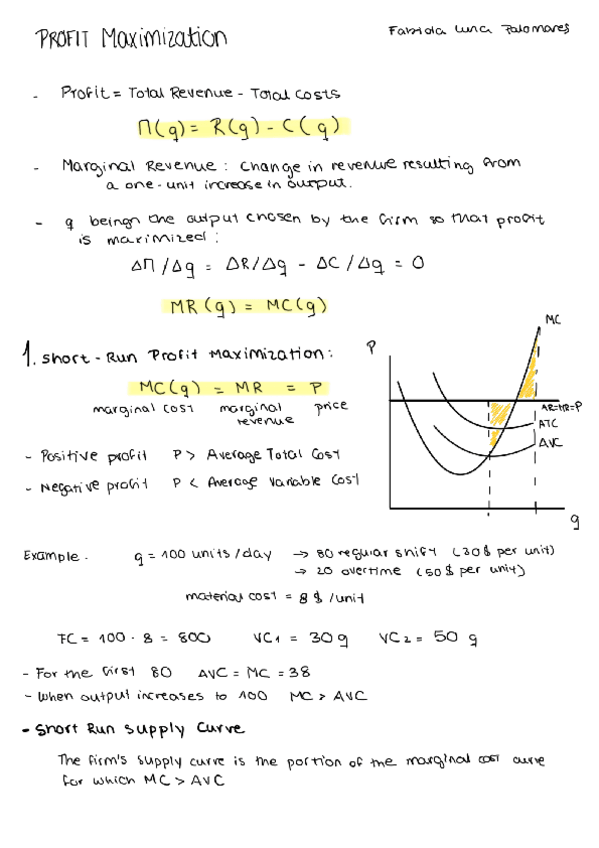 PROFIT Maximization
Fabiola Luna Palomares
- Profit = Total Revenue - Total Costs
Π(q) = R(q) - C(q)
- Marginal Revenue : Change in revenue resulting from
a one-unit increase in output.
- q beingn the output chosen by the firm so that profit
is maximized :
ΔΠ/Δq = ΔR/Δq - ΔC/Δq = 0
MR(q) = MC(q)
1. Short-Run Profit Maximization:
MC(q) = MR = P
marginal cost marginal revenue price
- Positive profit P > Average Total Cost
- Negative profit P < Average Variable Cost
P
MC
AR=MR=P
ATC
AVC
q
Example. q = 100 units/day → 80 regular shift (30$ per unit)
→ 20 overtime (50$ per unit)
material cost = 8 $/unit
FC = 100 · 8 = 800 VC1 = 30q VC2 = 50 q
- For the first 80 AVC = MC = 38
- When output increases to 100 MC > AVC
- Short Run Supply Curve
The firm's supply curve is the portion of the marginal cost curve
for which MC > AVC